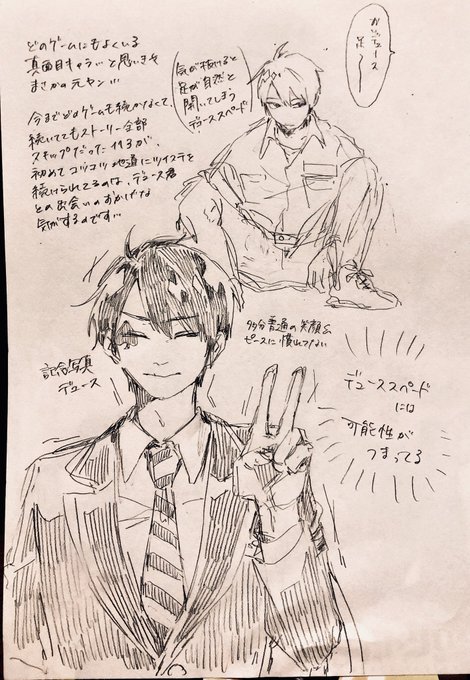 どのゲームにもよくいる
真面目キャラ…と思いきや
まさかの元ヤン…
今までどのゲームも続かなくて、
続いててもストーリー全部
スキップだった
初めてコツコツ地道にツイステを
続けられてるのは、デュース君
との出会いのおかげな
気がするのです…
気が抜けると
足が自然と
開いてしまう
デューススペード
おいデュース
足〜
記念写真
デュース
多分普通の笑顔&
ピースに慣れてない
デューススペード
には
可能性が
つまってる